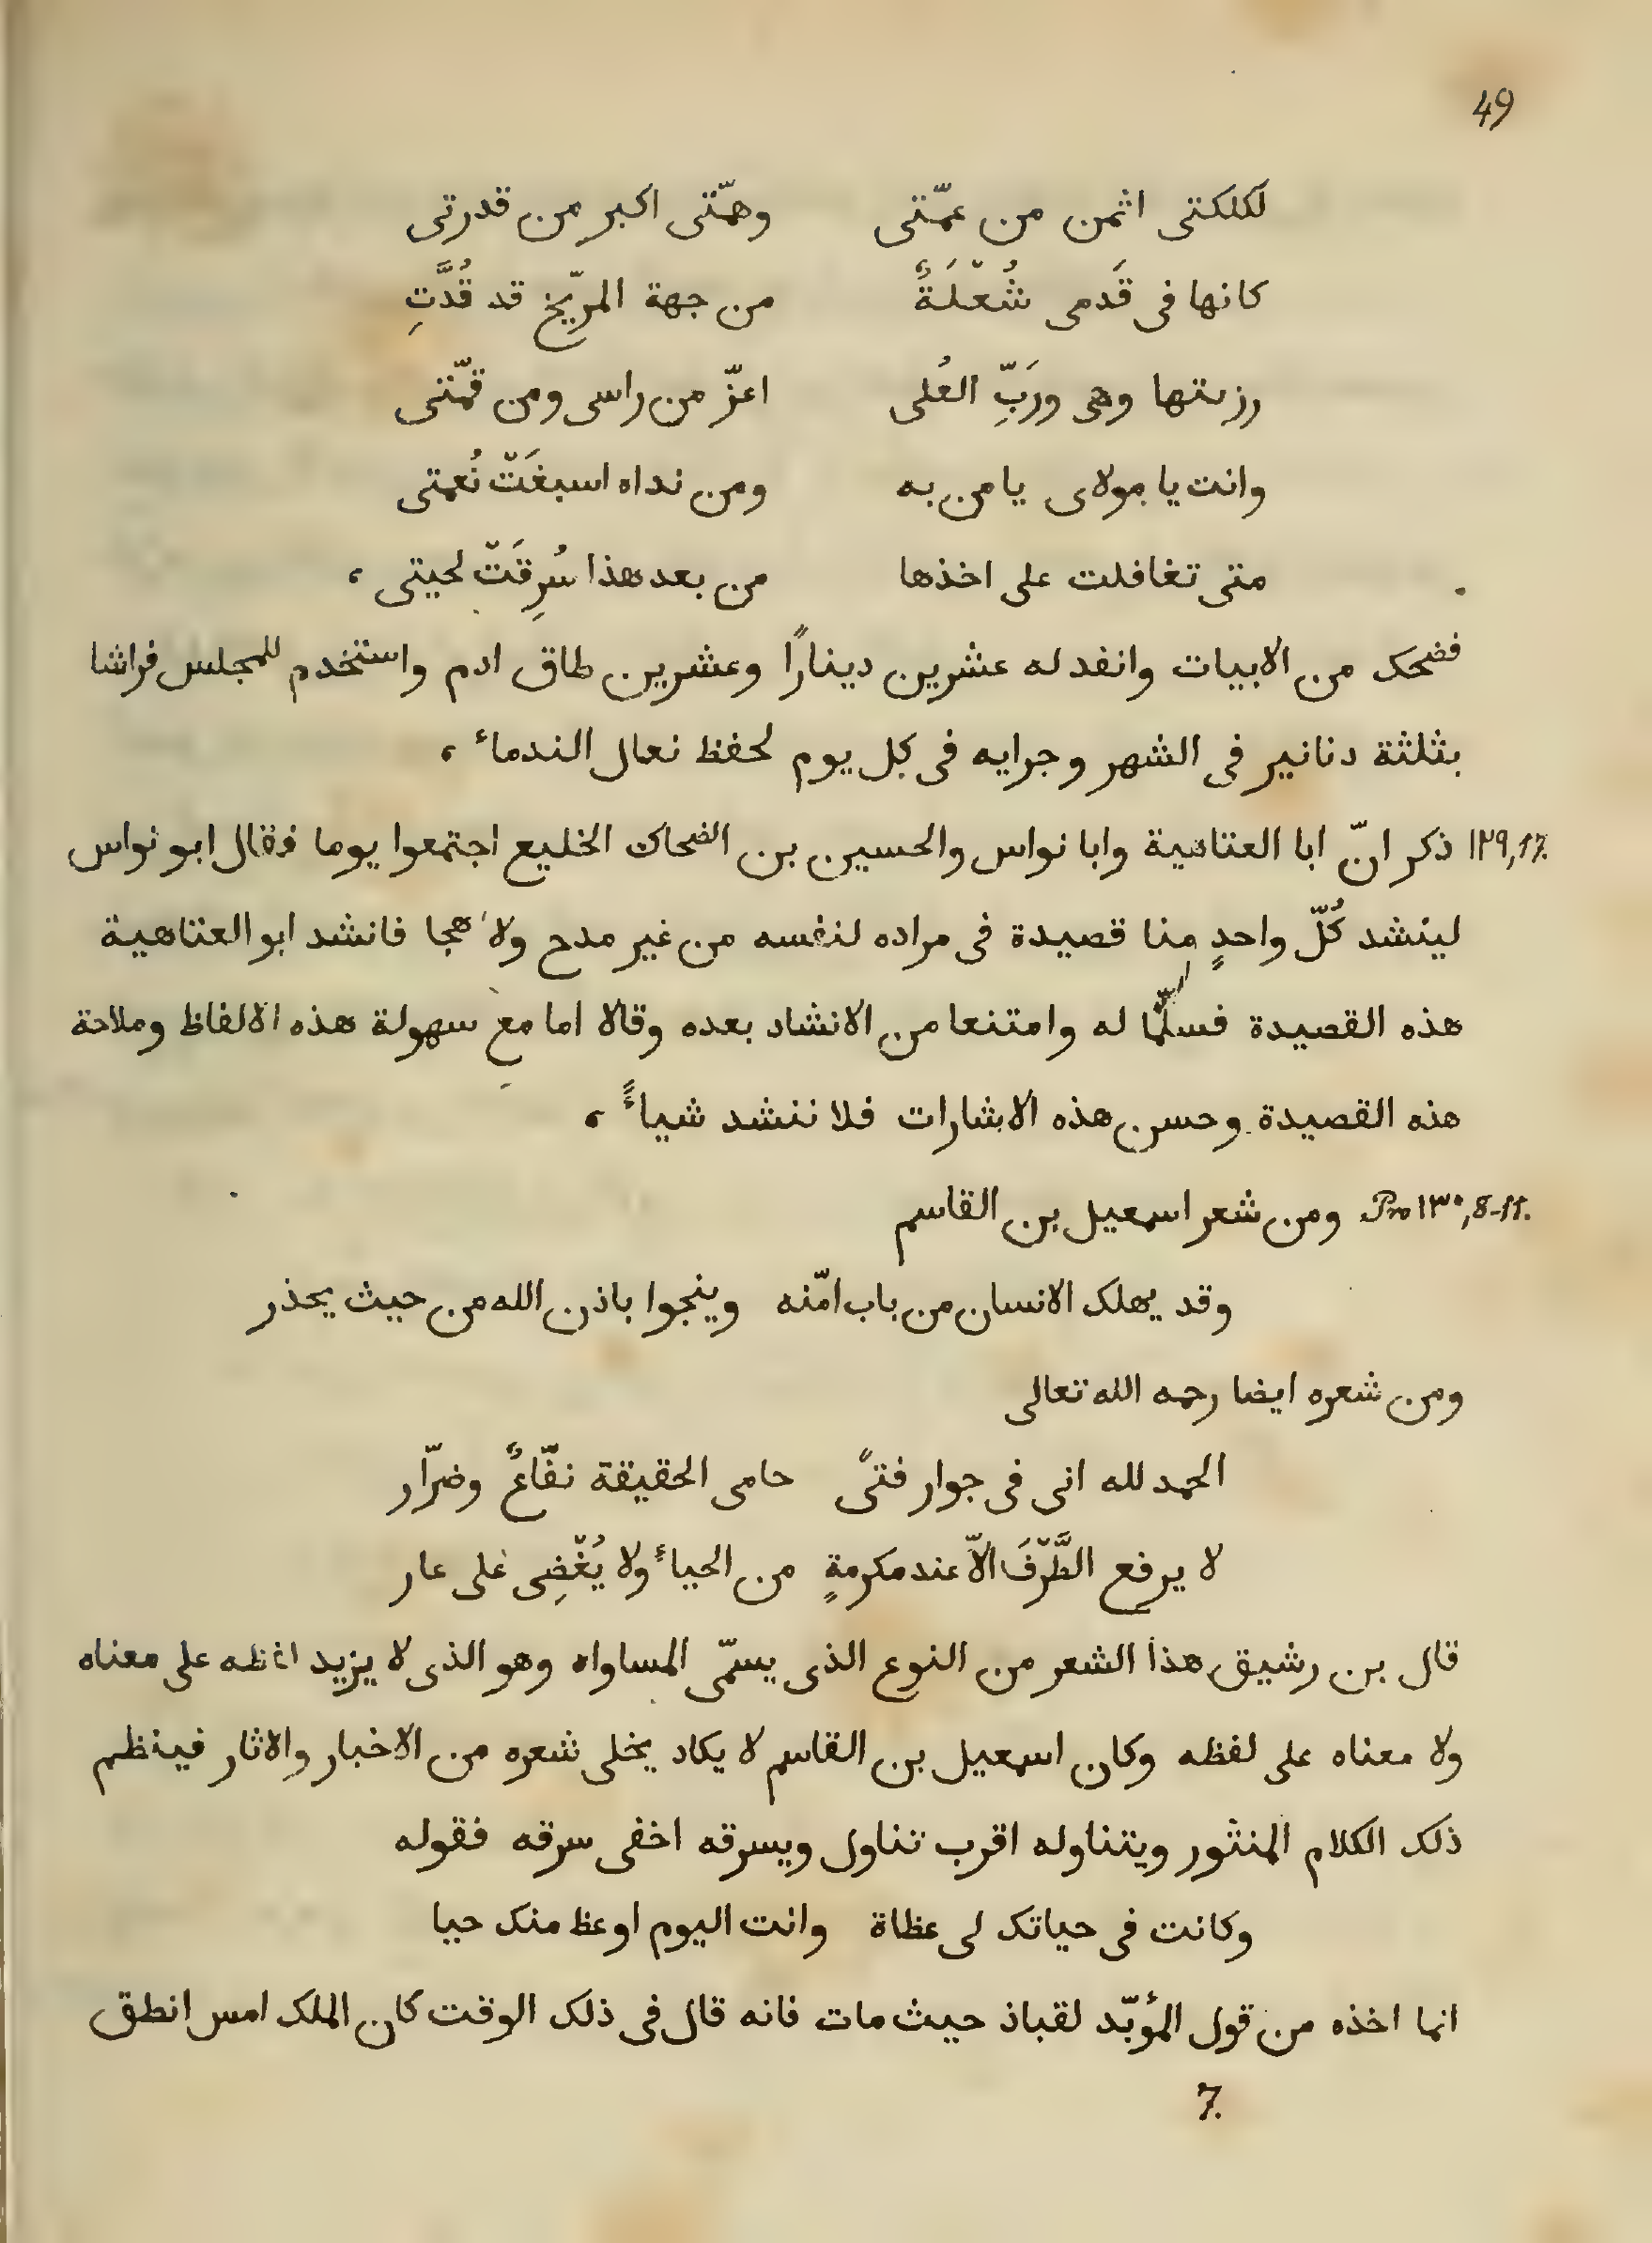 49
لكلكتى اثمن من عمّتى وهمّتى اكبر من قدرتى
كانها فى قَدمى شُعْلَةٌ من جهة المرّيخ قد قُدَّتِ
رزىتها وهى ورَبِّ العُلى اعزّ من راسى ومن قمّتى
وانت يا مولاى يا من به ومن نداه اسبغَتْ نُعمتى
متى تغافلت على اخذها من بعد هذا سُرِقَتْ لحيتى ،
فضحك من الابيات وانفد له عشرين دينارًا وعشرين طاق ادم واستخدم للمجلس فراشا
بثلثة دنانير فى الشهر وجرايه فى كل يوم لحفظ نعال الندماء ،
١٢٩,17. ذكر انّ ابا العتاهية وابا نواس والحسين بن الضحاك الخليع اجتمعوا يوما فقال ابو نواس
لينشد كُلّ واحدٍ منا قصيدة فى مراده لنفسه من غير مدح ولا هجا فانشد ابو العتاهية
هذه القصيدة فسلّما له وامتنعا من الانشاد بعده وقالا اما مع سهولة هذه الالفاظ وملاحة
هذه القصيدة وحسن هذه الاشارات فلا ننشد شياءً ،
Pro ١٣٠,8-11. ومن شعر اسمعيل بن القاسم
وقد يهلك الانسان من باب امّنه وينجوا باذن الله من حيث يحذر
ومن شعره ايضا رحمه الله تعالى
الحمد لله انى فى جوار فتىً حامى الحقيقة نفّاعٌ وضرّار
لا يرفع الطَّرْفَ الّا عند مكرمةٍ من الحياء ولا يُغْضِى على عار
قال بن رشيق هذا الشعر من النوع الذى يسمّى المساواه وهو الذى لا يزيد لفظه على معناه
ولا معناه على لفظه وكان اسمعيل بن القاسم لا يكاد يخلى شعره من الاخبار والاثار فينظم
ذلك الكلام المنثور ويتناوله اقرب تناول ويسرقه اخفى سرقه فقوله
وكانت فى حياتك لى عظاة وانت اليوم اوعظ منك حيا
انما اخذه من قول المؤبّد لقباذ حيث مات فانه قال فى ذلك الوقت كان الملك امس انطق
7.